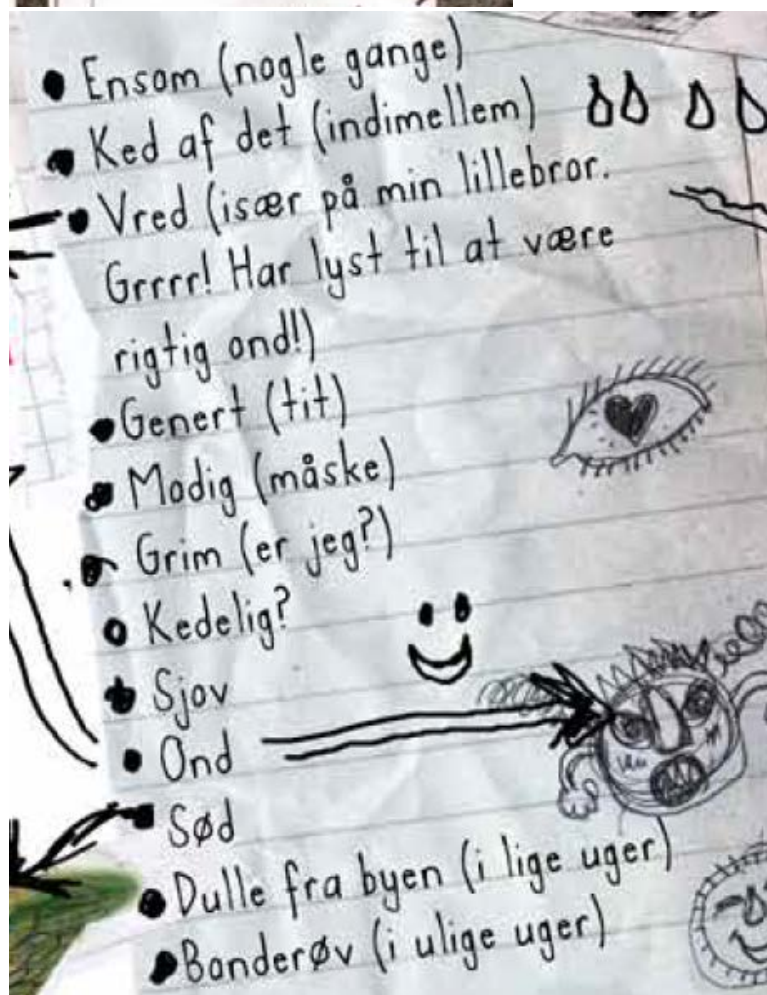 Ensom (nogle gange)
Ked af det (indimellem)
Vred (især på min lillebror.
Grrrr! Har lyst til at være
rigtig ond!)
Genert (tit)
Modig (måske)
Grim (er jeg?)
Kedelig?
Sjov
Ond
Sød
Dulle fra byen (i lige uger)
Bonderøv (i ulige uger)